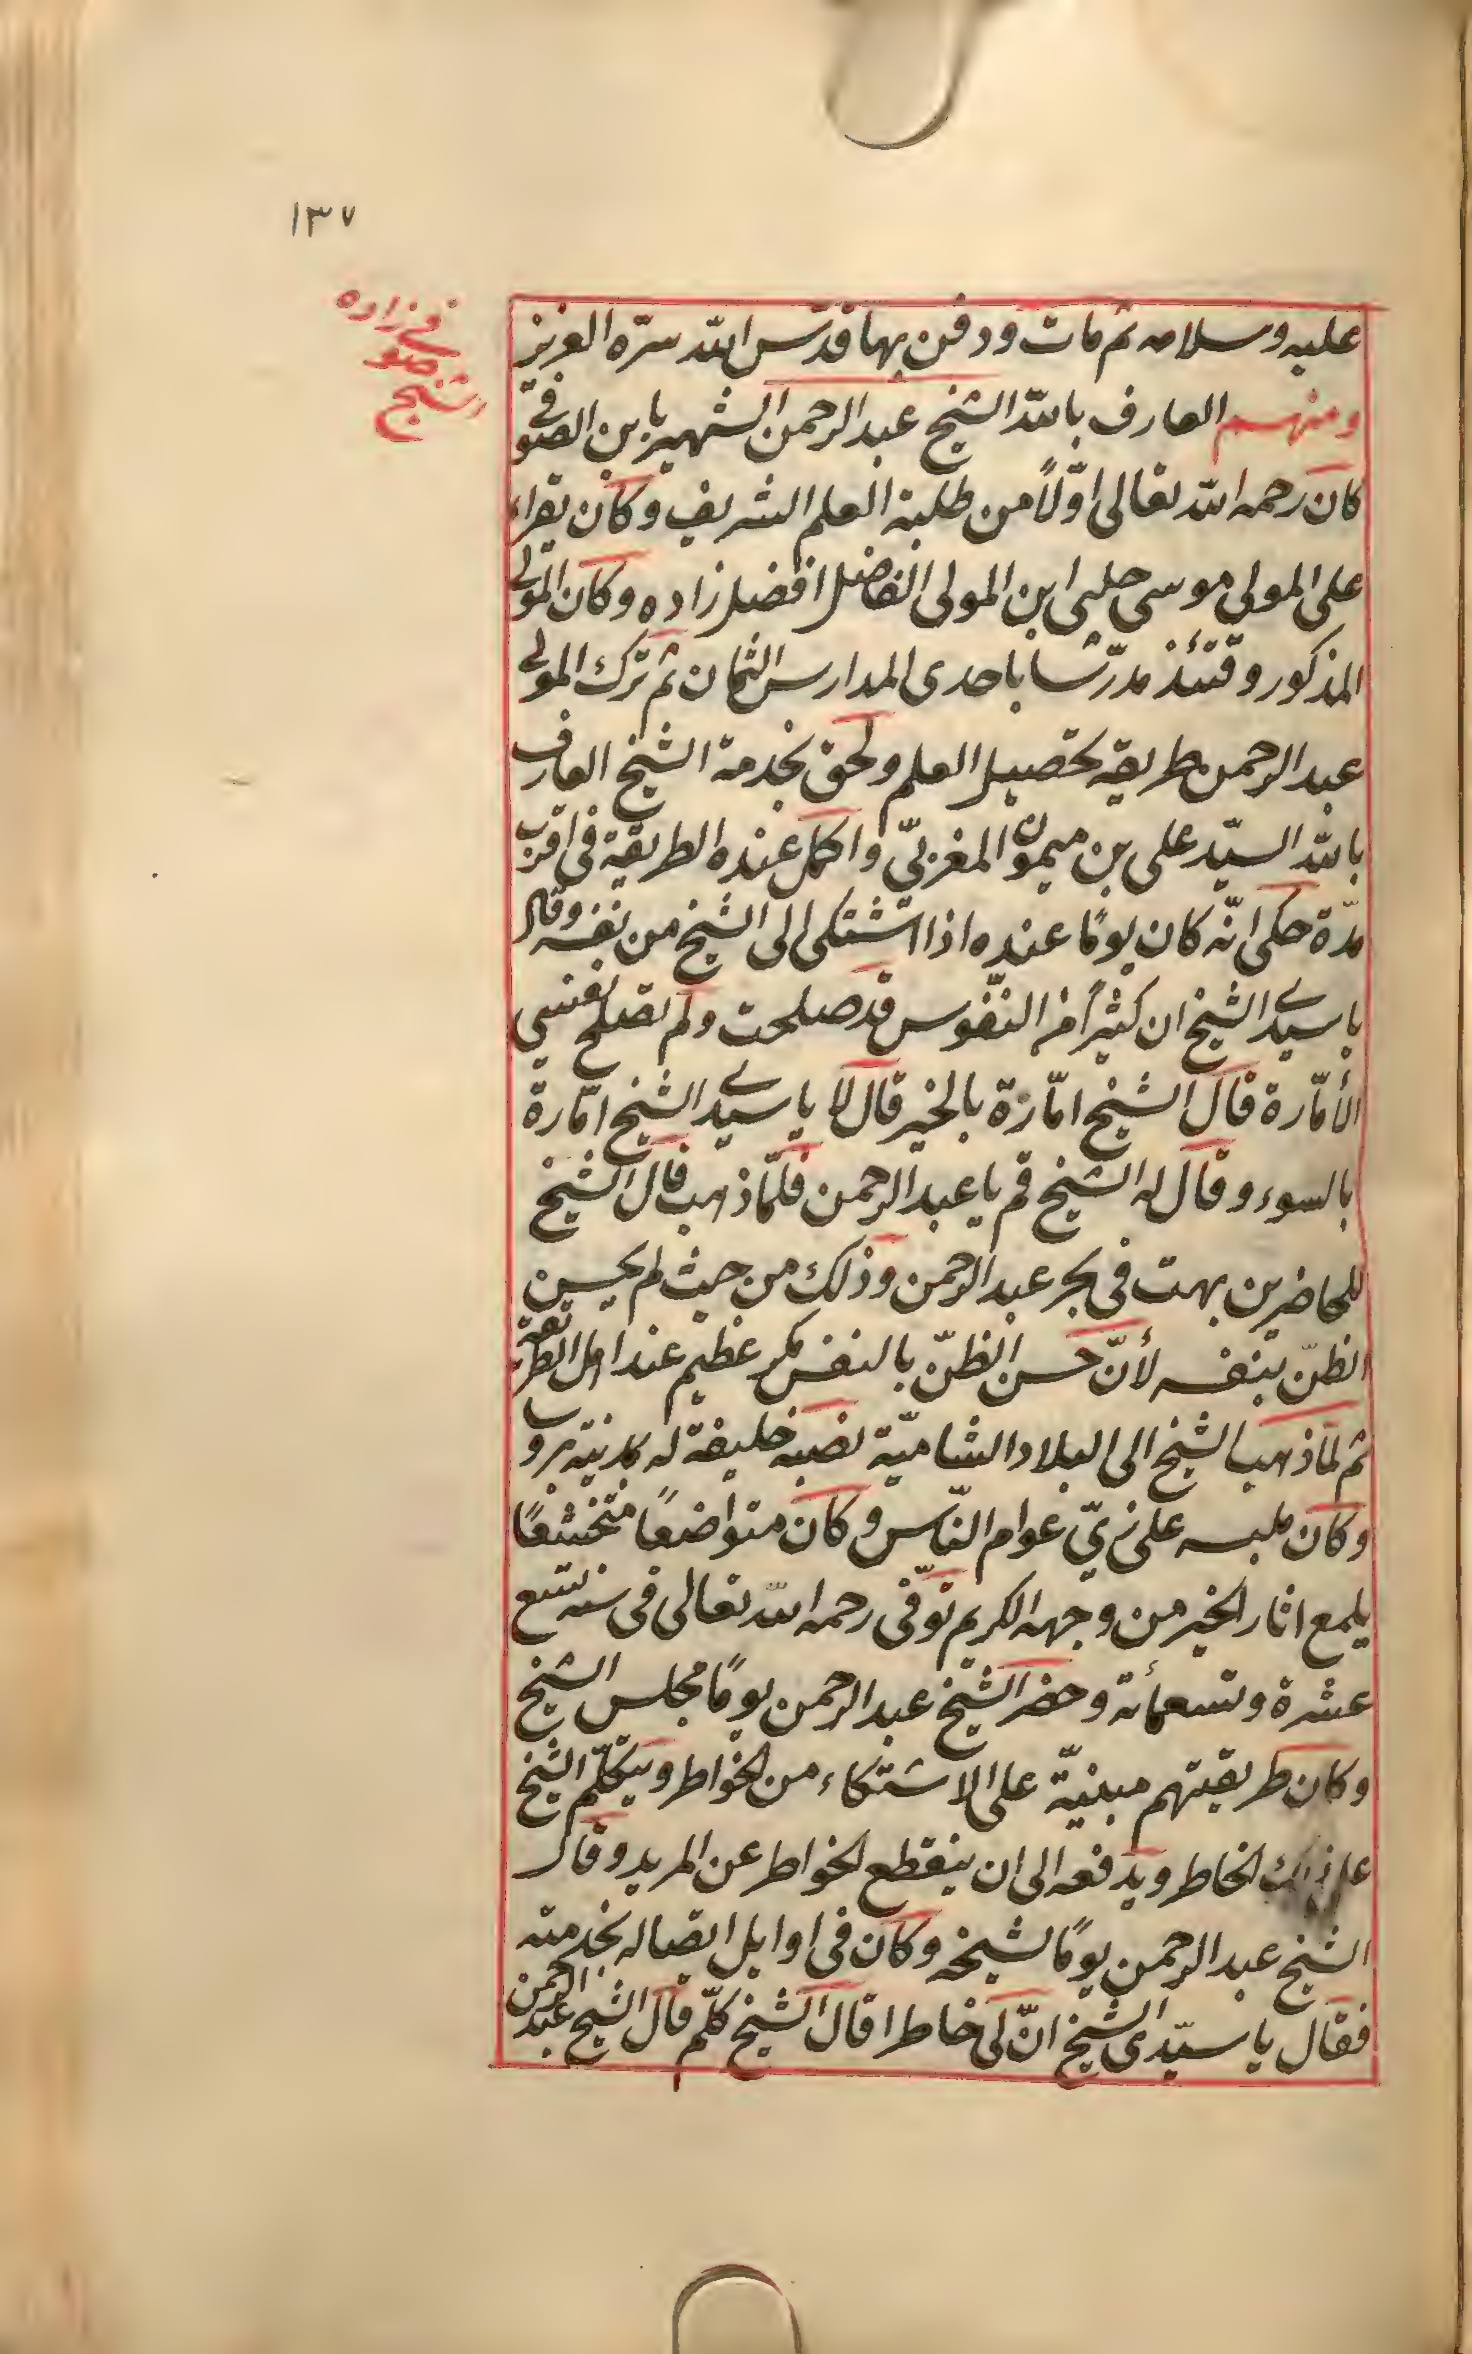 ١٣٧
الشيخ
صو
فى زاده
عليه وسلامه ثم مات ودفن بها قدّس الله سرّه العزيز
ومنهم العارف بالله الشيخ عبد الرحمن الشهير بابن الصوفى
كان رحمه الله تعالى اوّلاً من طلبة العلم الشريف وكان يقراء
على المولى موسى جلبى ابن المولى الفاضل افضل زاده وكان المولى
المذكور وقتئذ مدرّسا باحدى المدارس الثمان ثم ترك المولى
عبد الرحمن طريقة تحصيل العلم ولحق بخدمة الشيخ العارف
بالله السيّد على بن ميمون المغربيّ واكمل عنده الطريقة فى اقرب
مدّة حكى انّه كان يومًا عنده اذا اشتكى الى الشيخ من نفسه وقال
يا سيدى الشيخ ان كثيرًا من النفوس قد صلحت ولم تصلح نفسي
الأمّارة قال الشيخ امّارة بالخير قال لا يا سيدى الشيخ امّارة
بالسوء وقال له الشيخ قم يا عبد الرحمن فلمّا ذهب قال الشيخ
للحاضرين بهت فى بحر عبد الرحمن وذلك من حيث لم يحسن
الظنّ بنفسه لأنّ حسن الظنّ بالنفس مكر عظيم عند اهل الطريقة
ثم لمّا ذهب الشيخ الى البلاد الشاميّة نصبه خليفة له بمدينة بروسا
وكان ملبسه على زيّ عوام النّاس وكان متواضعاً متخشعًا
يلمع اثار الخير من وجهه الكريم توفّى رحمه الله تعالى فى سنة تسع
عشرة وتسعمأئة وحضر الشيخ عبد الرحمن يومًا مجلس الشيخ
وكان طريقتهم مبنيّة على الاشتكاء من الخواطر ويتكلّم الشيخ
على ذلك الخاطر ويدفعه الى ان ينقطع الخواطر عن المريد وقال
الشيخ عبد الرحمن يومًا لشيخه وكان فى اوايل اتصاله بخدمته
فقال يا سيّدى الشيخ انّ لى خاطرا قال الشيخ كلّم قال الشيخ عبد الرحمن